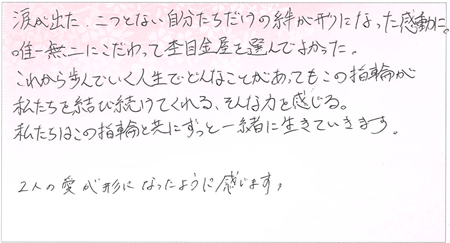 涙が出た。二つとない自分たちだけの絆が形になった感動に。
唯一無二にこだわって杢目金屋を選んでよかった。
これから歩んでいく人生でどんなことがあってもこの指輪が
私たちを結び続けてくれる、そんな力を感じる。
私たちはこの指輪と共にずっと一緒に生きていきます。
2人の愛が形になったように感じます。